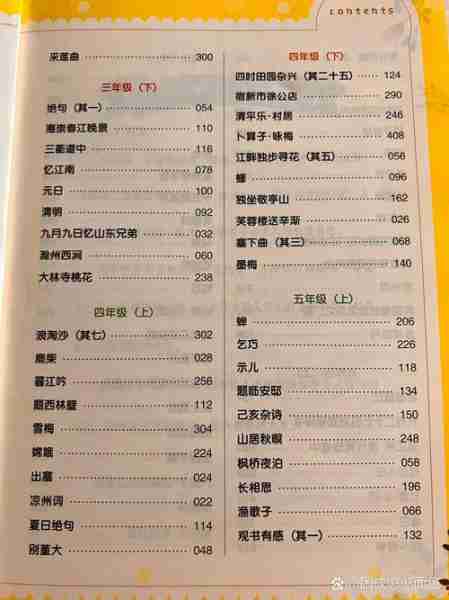 contents
采莲曲 300
三年级（下）
绝句（其一） 054
惠崇春江晚景 110
三衢道中 116
忆江南 078
元日 100
清明 092
九月九日忆山东兄弟 032
滁州西涧 060
大林寺桃花 238
四年级（上）
浪淘沙（其七） 302
鹿柴 028
暮江吟 256
题西林壁 112
雪梅 304
嫦娥 224
出塞 024
凉州词 022
夏日绝句 114
别董大 048
四年级（下）
四时田园杂兴（其二十五） 124
宿新市徐公店 290
清平乐·村居 246
卜算子·咏梅 408
江畔独步寻花（其五） 056
蜂 096
独坐敬亭山 162
芙蓉楼送辛渐 026
塞下曲（其三） 068
墨梅 140
五年级（上）
蝉 206
乞巧 226
示儿 118
题临安邸 134
己亥杂诗 150
山居秋暝 248
枫桥夜泊 058
长相思 196
渔歌子 066
观书有感（其一） 132